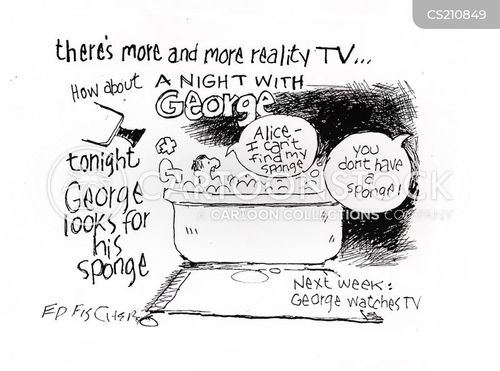 CS210849
there's more and more reality TV...
How about
A NIGHT WITH
George
tonight
George
looks for
his
sponge
Alice-
I can't
find my
sponge
you
don't have
a
sponge!
CARTOONSTOCK
A CARTOON COLLECTIONS COMPANY
Next week:
George watches TV
ED FISCHER